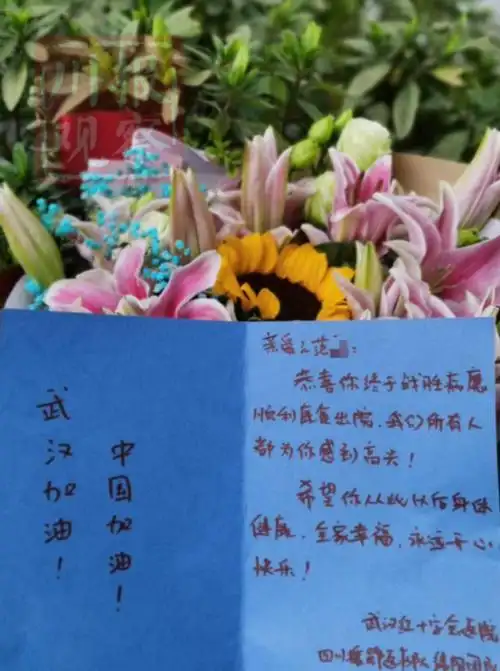 四川
观察
武汉加油！
中国加油！
亲爱的范
恭喜你终于战胜病魔
顺利康复出院，我们所有人
都为你感到高兴！
希望你从此以后身体
健康，全家幸福，永远开心
快乐！
武汉红十字会医院
四川援鄂医疗队